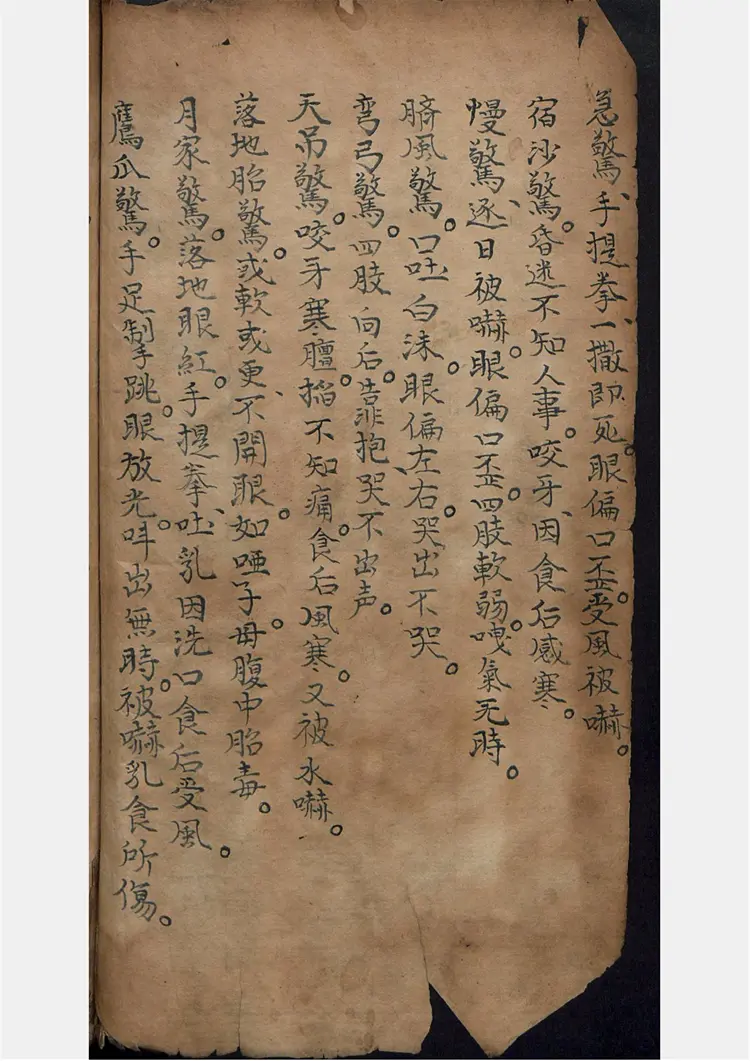 急驚、手提拳、一撒即死。眼偏口歪。受風被嚇。
宿沙驚。昏迷不知人事。咬牙、因食后感寒。
慢驚、逐日被嚇。眼偏口歪。四肢軟弱。嘆氣无時。
臍風驚。口吐白沫。眼偏左右。哭出不哭。
弯弓驚。四肢向后。靠抱、哭不出声。
天吊驚。咬牙寒膻。搯不知痛。食后風寒。又被水嚇。
落地胎驚。或軟或更、不開眼。如啞子。母腹中胎毒。
月家驚。落地眼紅。手提拳、吐乳因洗口食后受風。
鷹爪驚。手足掣跳。眼放光。呌出無時。被嚇乳食所傷。